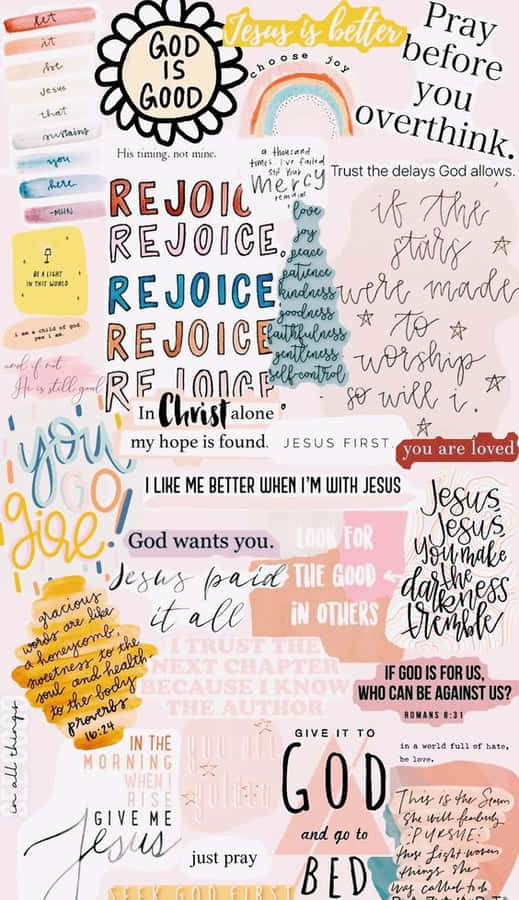 let
it
be
Jesus
that
sustains
you
here
-MHN
GOD
IS
GOOD
Jesus is better
choose joy
Pray
before
you
overthink.
His timing, not mine.
a thousand
times i've failed
still your
Mercy
remains
Trust the delays God allows.
REJOICE
REJOICE.
REJOICE
REJOICE
REJOICE
love
joy
peace
patience
kindness
goodness
faithfulness
gentleness
self-control
if the
stars
were made
to
worship
so will i.
BE A LIGHT
IN THIS WORLD
i am a child of god.
yes i am.
and if not
He is still good
In Christ alone
my hope is found.
JESUS FIRST.
you are loved
you
GO
girl
I LIKE ME BETTER WHEN I'M WITH JESUS
God wants you.
LOOK FOR
THE GOOD
IN OTHERS
Jesus paid
it all
Jesus,
Jesus,
you make
the
darkness
tremble
gracious
words are like
a honeycomb,
sweetness to the
soul and health
to the body
proverbs
16:24
I TRUST THE
NEXT CHAPTER
BECAUSE I KNOW
THE AUTHOR
IF GOD IS FOR US,
WHO CAN BE AGAINST US?
ROMANS 8:31
in all things
IN THE
MORNING
WHEN I
RISE
GIVE ME
Jesus
you are
golden
GIVE IT TO
GOD
and go to
BED
in a world full of hate,
be love.
just pray
SEEK GOD FIRST
This is the Season
She will fearlessly
PURSUE
those
things She
was called to be